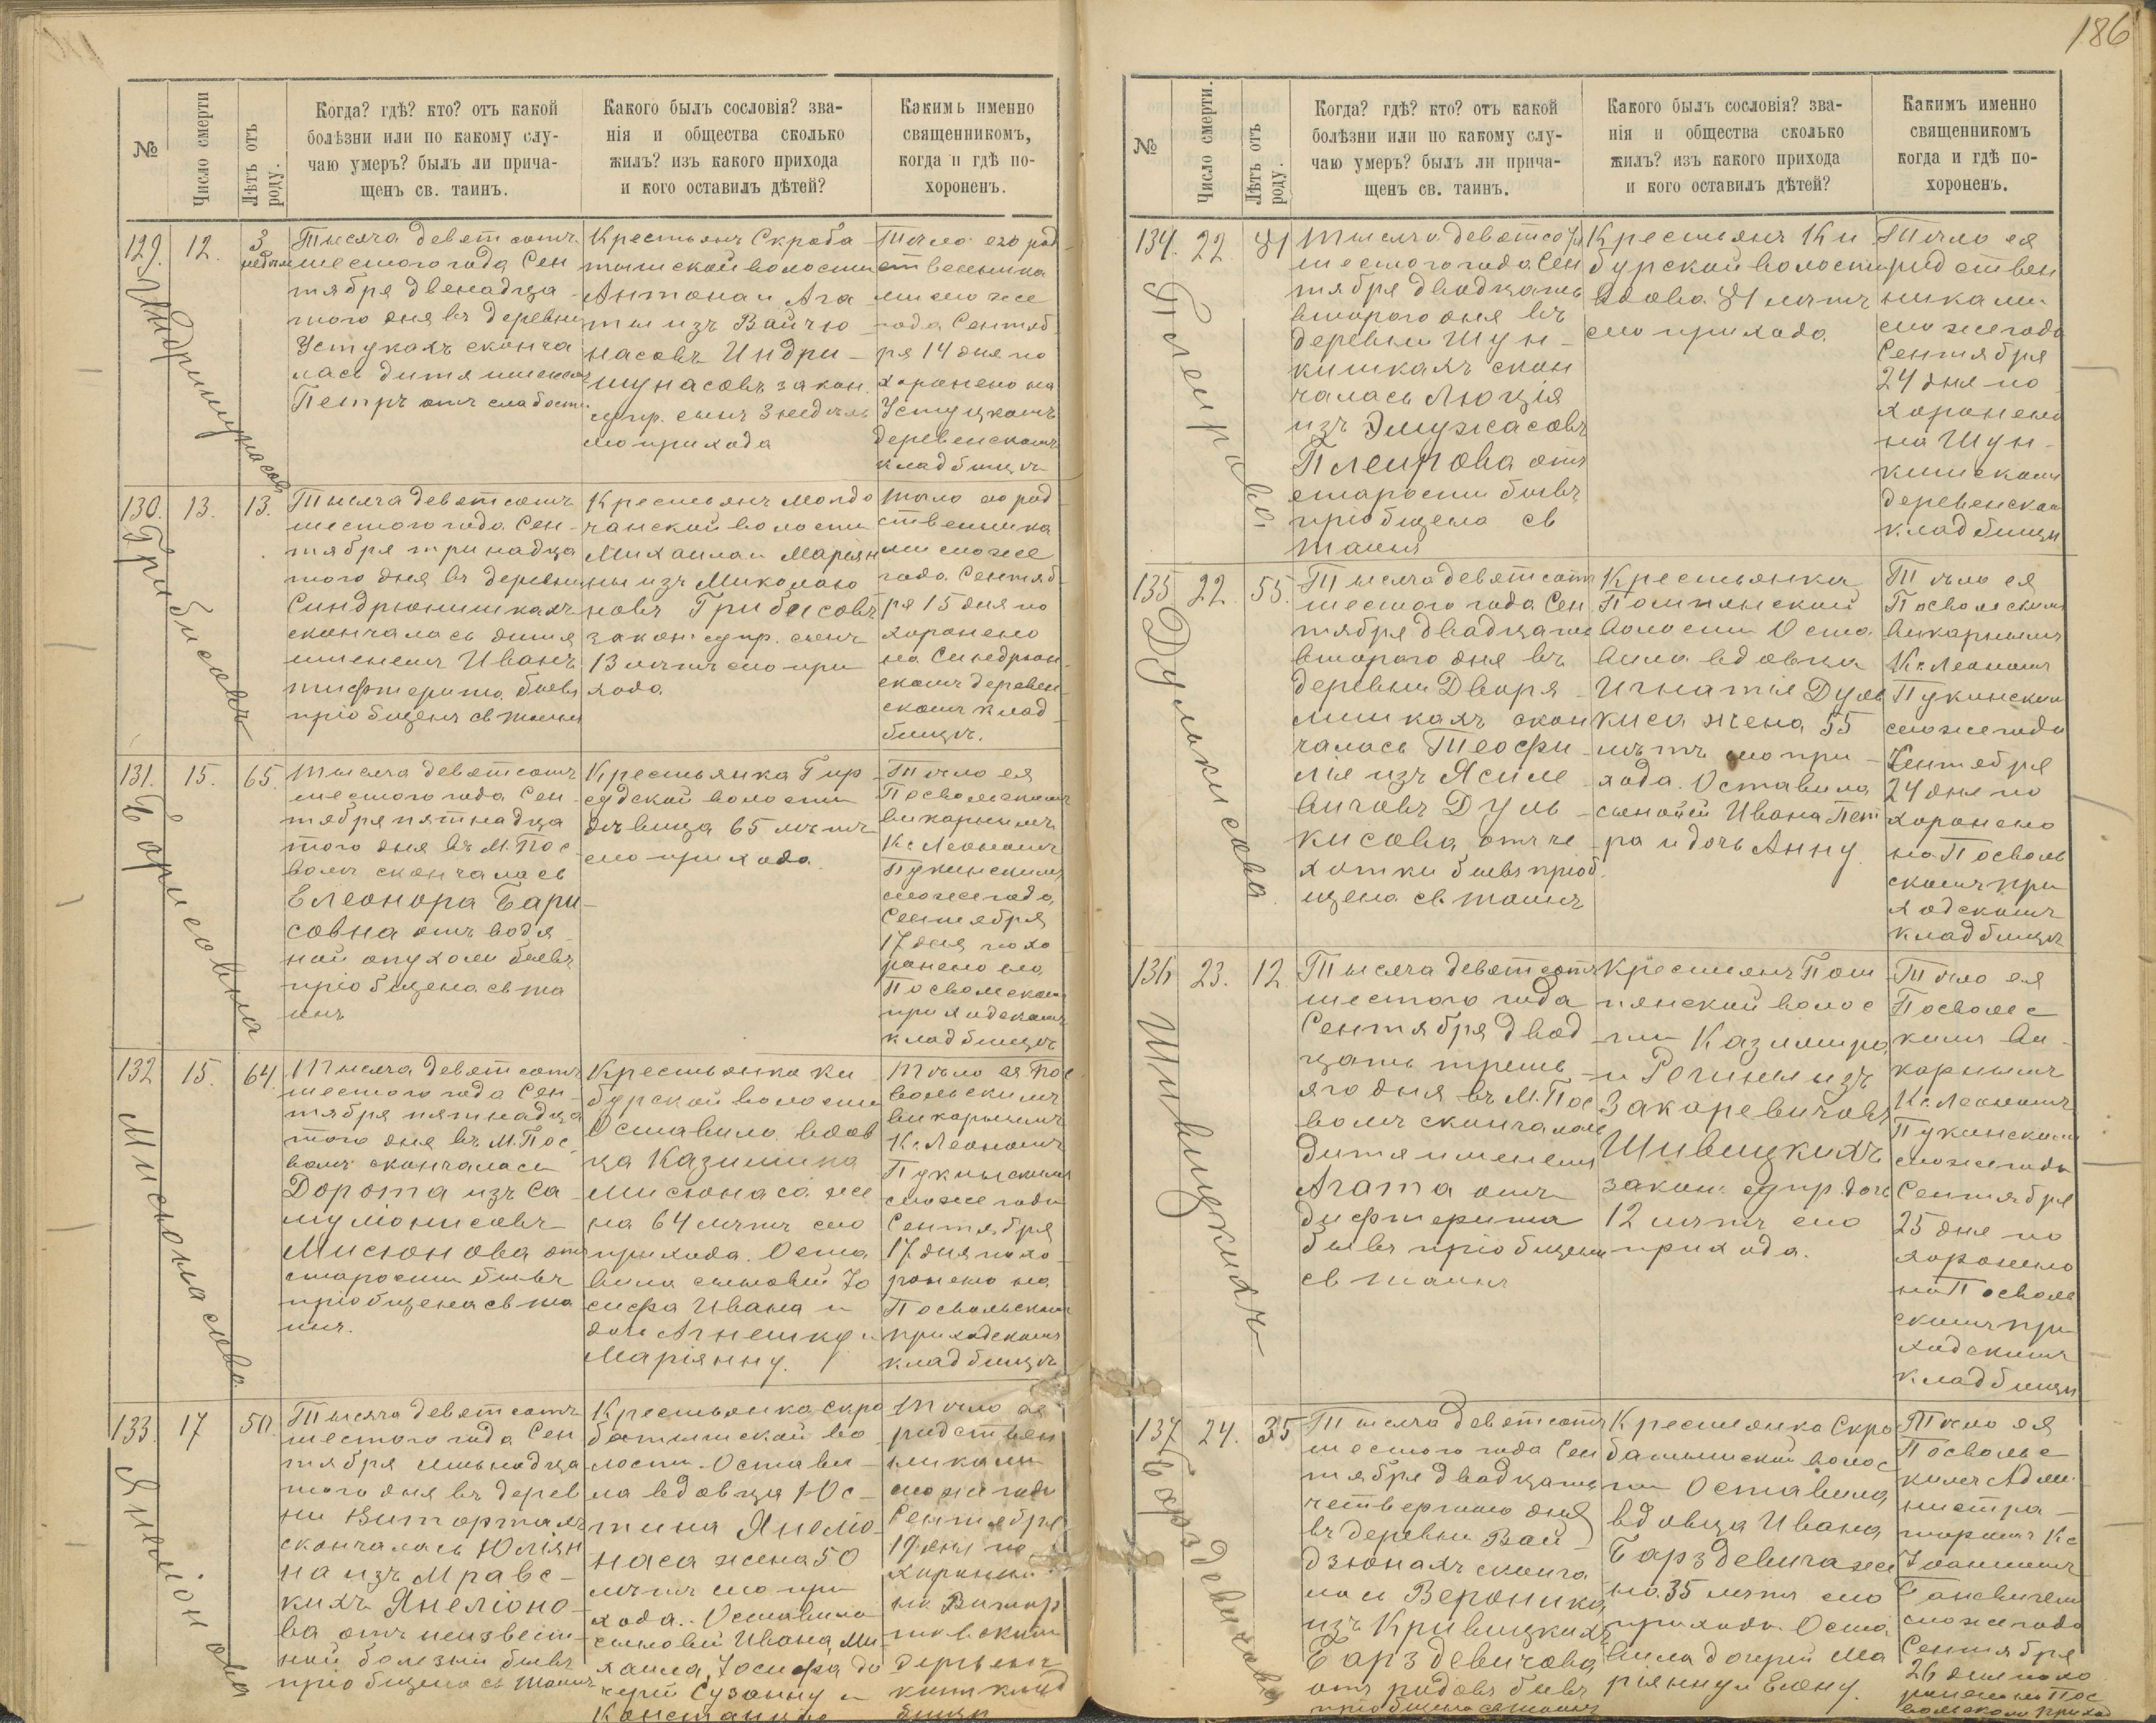 186
№
Число смерти
Лѣтъ отъ роду.
Когда? гдѣ? кто? отъ какой
болѣзни или по какому слу-
чаю умеръ? былъ ли прича-
щенъ св. таинъ.
Какого былъ сословія? зва-
нія и общества сколько
жилъ? изъ какого прихода
и кого оставилъ дѣтей?
Какимъ именно
священникомъ,
когда и гдѣ по-
хороненъ.
129.
12.
3
недѣли
Тысяча девятсотъ
шестого года Сен
тября двенадца
того дня въ деревни
Устукахъ сконча
лась дитя именемъ
Петръ отъ слабости
Крестьянъ Скроба
тишской волости
Антона и Ага
ты изъ Вайчю
насовъ Индри-
шунасовъ закон.
супр. сынъ 3 недѣль
сто прихода
Тѣло его род
ственника
ми сто же
года Сентяб
ря 14 дня по
хоронено на
Устукскомъ
деревенскомъ
кладбищѣ
130.
Грибисовъ
13.
13.
Тысяча девятсотъ
шестого года Сен-
тября тринадца
того дня въ деревни
Синдрюнишкахъ
скончалась дитя
именемъ Иванъ
дифтерита бывъ
пріобщенъ св таинъ
Крестьянъ Молдо
чанской волости
Михаила и Маріян
ны изъ Миколаю
новъ Грибисовъ
закон. супр. сынъ
13 лѣтъ сто при
хода
Тѣло его род
ственника
ми сто же
года Сентяб
ря 15 дня по
хоронено
на Синдрюн-
скомъ деревен-
скомъ клад-
бищѣ.
131.
Барисовна
15.
65.
Тысяча девятсотъ
шестого года Сен
тября пятнадца
того дня въ М. Пос
волѣ скончалась
Елеонора Бари-
совна отъ водя
ной опухоли бывъ
пріобщена св таи
инъ
Крестьянка Гир
судской волости
дѣвица 65 лѣтъ
сто прихода
Тѣло ея
Посвольскимъ
викарнымъ
Кс. Леономъ
Пукинскимъ
сто же года
Сентября
17 дня похо
ронено на
Посвольскомъ
приходскомъ
кладбищѣ
132
Мисюнасова
15.
64.
Тысяча девятсотъ
шестого года Сен-
тября пятнадца
того дня въ М. Пос
волѣ скончалась
Дорота изъ Са
муліонисовъ
Мисюнова отъ
старости бывъ
пріобщена св таи
инъ.
Крестьянка Ки
бурской волости
Оставила вдов
ца Казимира
Мисюнаса же
на 64 лѣтъ сто
прихода. Оста
вила сыновей Іо
сифа Ивана и
доч Агнешку и
Маріянну.
Тѣло ея Пос
вольскимъ
викарнымъ
Кс. Леономъ
Пукинскимъ
сто же года
Сентября
17 дня похо
ронено на
Посвольскомъ
приходскомъ
кладбищѣ
133.
Янеліонова
17
50.
Тысяча девятсотъ
шестого года Сен
тября семьнадца
того дня въ дерев
ни Виторталь
скончалась Юліян
на изъ Мравс-
кихъ Янеліоно-
ва отъ неизвест-
ной болезни бывъ
пріобщена св таинъ
Крестьянка Скро
батишской во
лости. Остави-
ла вдовца Юс-
тина Янеліо-
наса жена 50
лѣтъ сто при
хода. Оставила
сыновей Ивана, Ми-
хаила, Іосифа до
черей Сузанну и
Тѣло ея
родствен
никами
сто же года
Сентября
19 дня по
хоронено
на Витор
№
Число смерти.
Лѣтъ отъ роду.
Когда? гдѣ? кто? отъ какой
болѣзни или по какому слу-
чаю умеръ? былъ ли прича-
щенъ св. таинъ.
Какого былъ сословія? зва-
нія и общества сколько
жилъ? изъ какого прихода
и кого оставилъ дѣтей?
Какимъ именно
священникомъ
когда и гдѣ по-
хороненъ.
134.
22.
81
Тысяча девятсотъ
шестого года Сен
тября двадцать
второго дня въ
деревни Шун-
кишкахъ скон
чалась Люція
изъ Эмужасовъ
Плеирова отъ
старости бывъ
пріобщена св
таинъ
Крестьянъ Ки
бурской волости
вдова 81 лѣтъ
сто прихода
Тѣло ея
родствен
никами
сто же года
Сентября
24 дня по
хоронено
на Шун-
кишскомъ
деревенском
кладбищи
135
Дулькисова
22.
55.
Тысяча девятсотъ
шестого года Сен
тября двадцать
второго дня въ
деревни Дворя-
лишкахъ скон
чалась Теофи-
лія изъ Ясиле
вичовъ Дуль-
кисова отъ че
хотки бывъ пріоб.
щена св. таинъ
Крестьянка
Помпянской
волости Оста
вила вдовца
Игнатія Дуль
киса жена 55
лѣтъ сто при-
хода. Оставила
сыновей Ивана Пет
ра и дочь Анну.
Тѣло ея
Посвольскимъ
викарнымъ
Кс. Леономъ
Пукинскимъ
сто же года
Сентября
24 дня по
хоронено
на Посволь
скомъ при
ходскомъ
кладбищѣ
136
Шивицкихъ
23.
12.
Тысяча девятсотъ
шестого года
Сентября двад
цать треть-
яго дня въ М. Пос
волѣ скончалась
дитя именемъ
Агата отъ
дифтерита
бывъ пріобщена
св таинъ
Крестьянъ Пом
пянской волос
ти Казимира
и Регины изъ
Закаревичовъ
Шивицкихъ
закон. супр. дочь
12 лѣтъ сто
прихода.
Тѣло ея
Посвольс
кимъ ви-
карнымъ
Кс. Леономъ
Пукинскимъ
сто же года
Сентября
25 дня по
хоронено
на Посволь
скомъ при
ходскомъ
кладбищи
137
Барздевичова
24.
35
Тысяча девятсотъ
шестого года Сен
тября двадцать
четвертаго дня
въ деревни Вай-
дзюнахъ сконча
лась Вероника
изъ Кривицкихъ
Барздевичова
отъ родовъ бывъ
пріобщена св таинъ
Крестьянка Скро
батишской волос
ти Оставила
вдовца Ивана
Барздевича же
на 35 лѣтъ сто
прихода. Оста
вила дочерей Ма
ріянну и Елену.
Тѣло ея
Посвольс
кимъ Адми
нистра-
торомъ Кс
сто же года
Сентября
26 дня похо
ронено на Пос
вольском приход